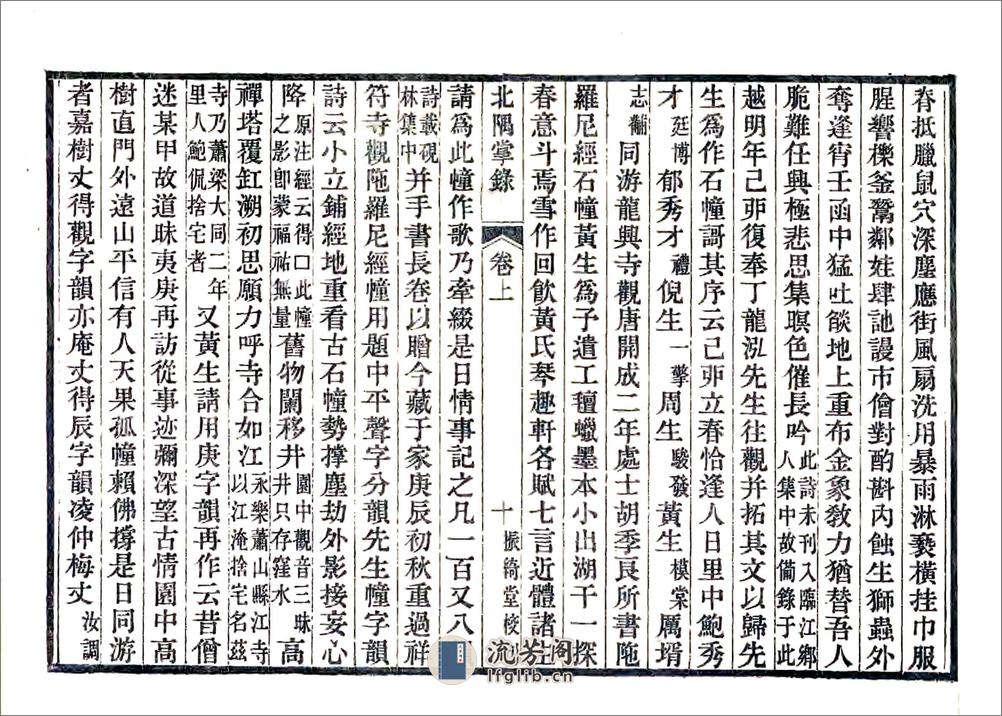 抵臘鼠穴深塵應街風扇洗用暴雨淋褻橫挂巾服
腥響櫟釜鬵鄰娃肆訑謾市儈對酌斟內蝕生獅蟲外
奪逢宵壬函中猛吐燄地上重布金象敎力猶替吾人
脆難任興極悲思集暝色催長吟此詩未刊入臨江鄉人集中故備錄于此
越明年己卯復奉丁龍泓先生往觀并拓其文以歸先
生爲作石幢謌其序云己卯立春恰逢人日里中鮑秀
才廷博郁秀才禮倪生一擎周生駿發黃生模棠厲壻
志黼同游龍興寺觀唐開成二年處士胡季良所書陁
羅尼經石幢黃生爲予遣工氊蠟墨本小出湖干一探
春意斗焉雪作回飲黃氏琴趣軒各賦七言近體諸生
北隅掌錄 卷上 十 振綺堂校
請爲此幢作歌乃牽綴是日情事記之凡一百又八句
詩載硯林集中并手書長卷以贈今藏于家庚辰初秋重過祥
符寺觀陁羅尼經幢用題中平聲字分韻先生幢字韻
詩云小立鋪經地重看古石幢勢撐塵劫外影接妄心
降原注經云得口此幢之影卽蒙福祐無量舊物闌移井園中觀音三昧井只存窪水高
禪塔覆缸溯初思願力呼寺合如江永樂蕭山縣江寺以江淹捨宅名茲
寺乃蕭梁大同二年里人鮑侃捨宅者又黃生請用庚字韻再作云昔僧
迷某甲故道昧夷庚再訪從事迹彌深望古情園中高
樹直門外遠山平信有人天果孤幢賴佛撐是日同游
者嘉樹丈得觀字韻亦庵丈得辰字韻凌仲梅丈汝調
流芳閣
lfglib.cn